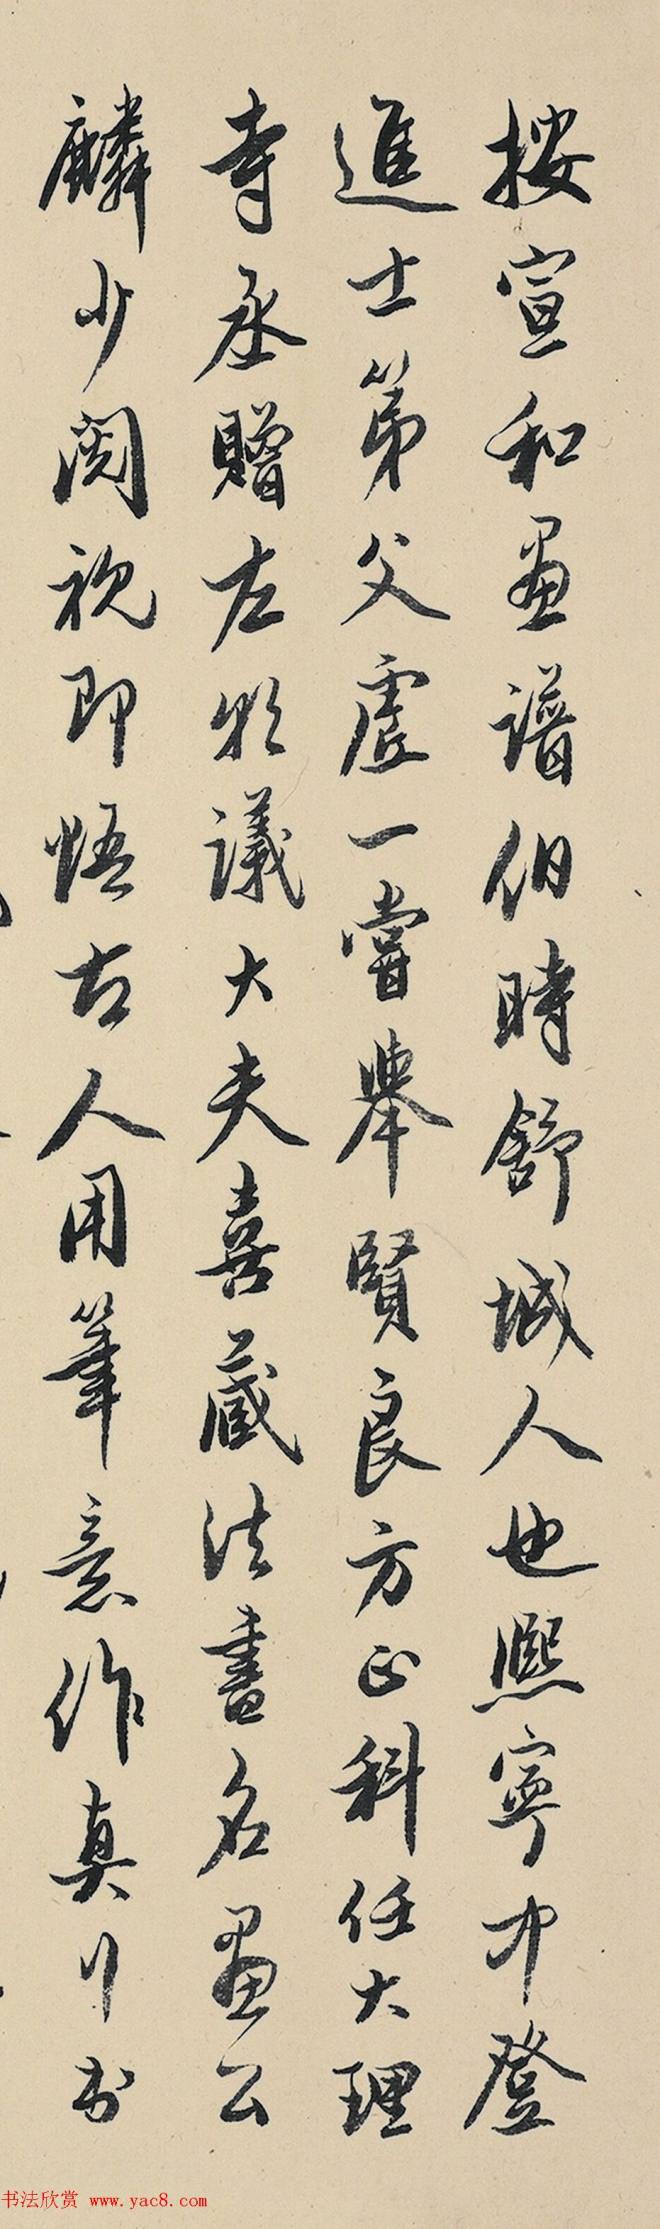 按宣和画譜伯時舒城人也熙寧中登
進士第父虛一嘗舉賢良方正科任大理
寺丞贈左朝議大夫喜蔵法書名画公
麟少閱視即悟古人用筆意作真行书
书法欣赏 www.yac8.com